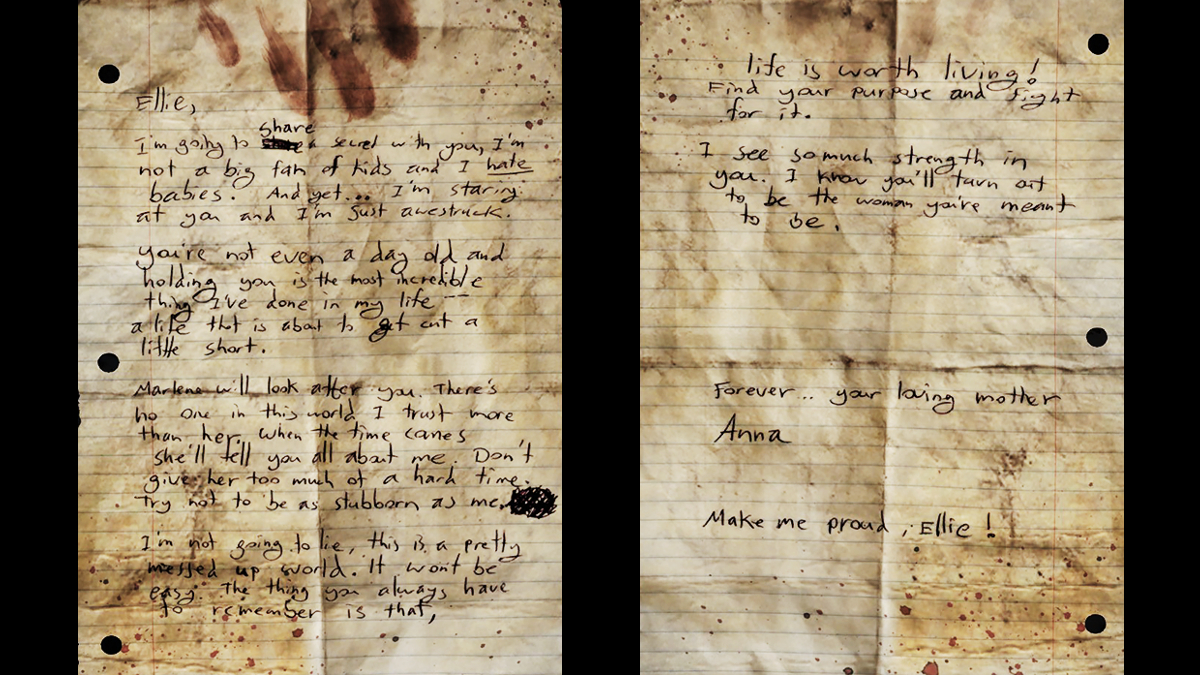 Ellie,
I'm going to share a secret with you, I'm
not a big fan of kids and I hate
babies. And yet... I'm staring
at you and I'm just awestruck.
You're not even a day old and
holding you is the most incredible
thing I've done in my life --
a life that is about to get cut a
little short.
Marlene will look after you. There's
no one in this world I trust more
than her. When the time comes
she'll tell you all about me. Don't
give her too much of a hard time.
Try not to be as stubborn as me.
I'm not going to lie, this is a pretty
messed up world. It wont be
easy. The thing you always have
to remember is that,
life is worth living!
Find your purpose and fight
for it.
I see so much strength in
you. I know you'll turn out
to be the woman you're meant
to be.
Forever.. your loving mother
Anna
Make me proud, Ellie!